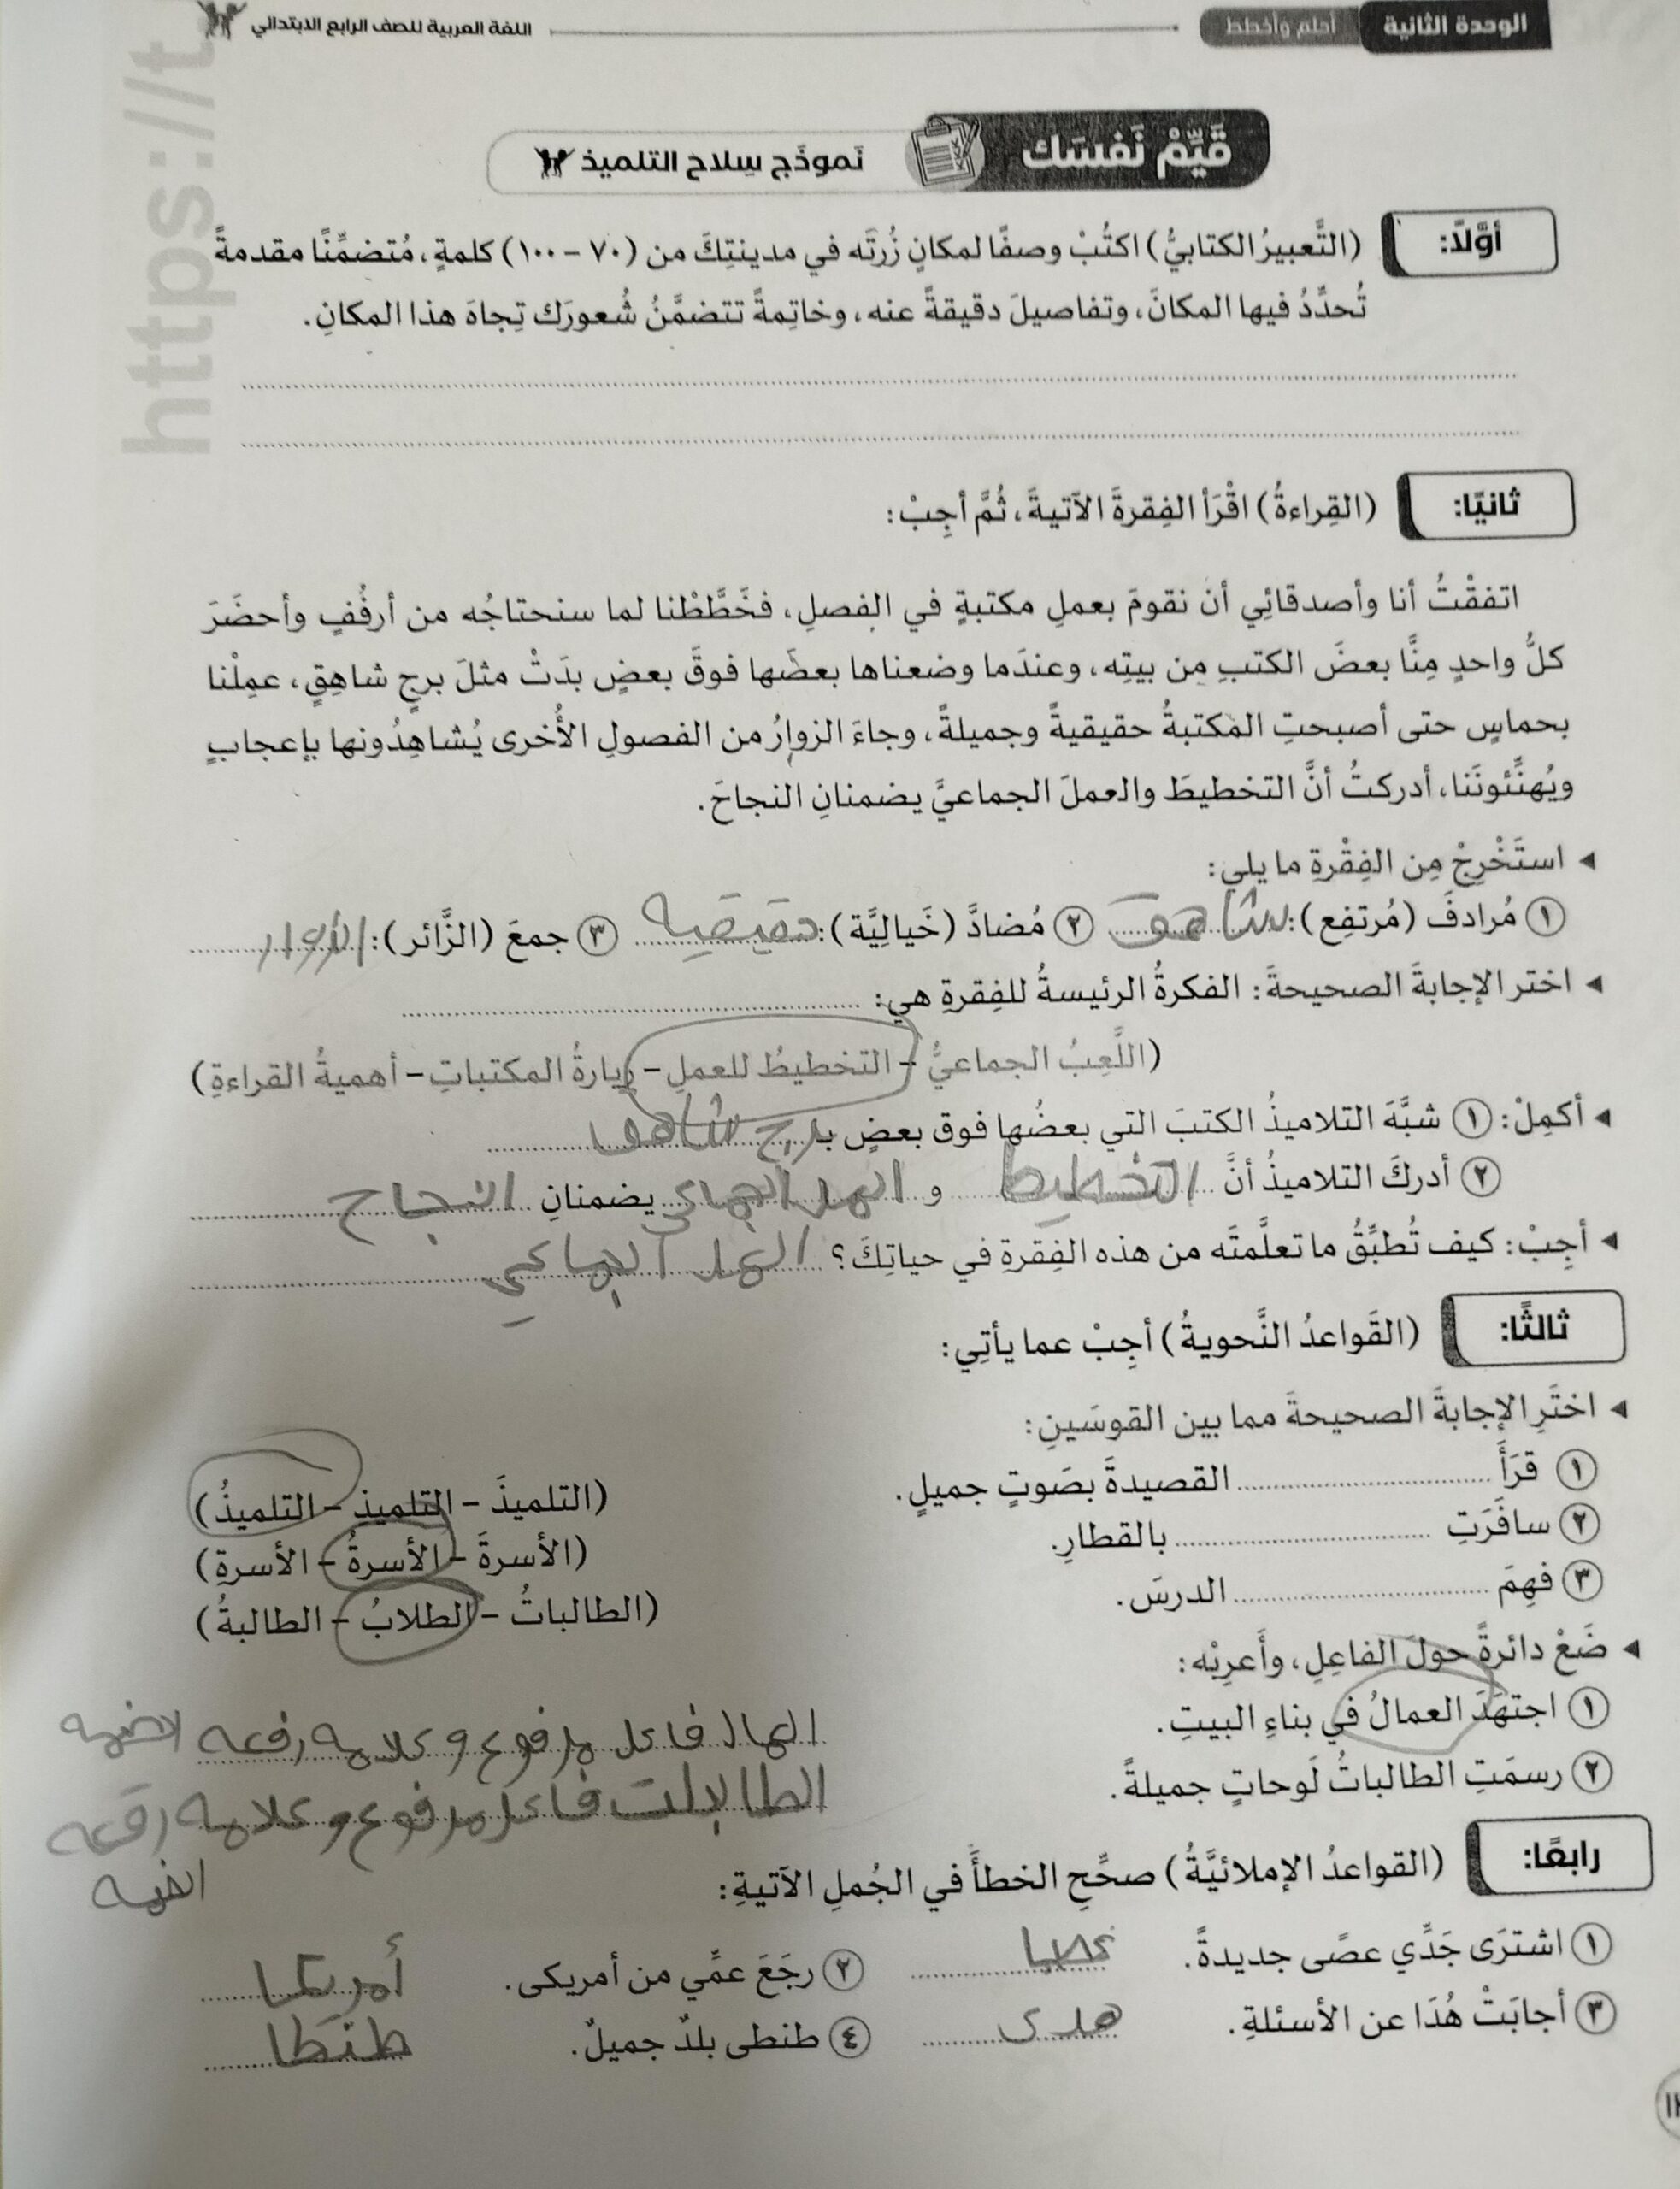 الوحدة الثانية أحلم وأخطط اللغة العربية للصف الرابع الابتدائي
https://t
قَيِّمْ نَفسَك نَموذَج سِلاح التلميذ
أوَّلًا: (التَّعبيرُ الكتابيُّ) اكتُبْ وصفًا لمكانٍ زُرتَه في مدينتِكَ من (٧٠ – ١٠٠) كلمةٍ، مُتضمِّنًا مقدمةً
تُحدِّدُ فيها المكانَ، وتفاصيلَ دقيقةً عنه، وخاتِمةً تتضمَّنُ شُعورَك تِجاهَ هذا المكانِ.
ثانيًا: (القِراءةُ) اقْرَأ الفِقرةَ الآتيةَ، ثُمَّ أجِبْ:
اتفقْتُ أنا وأصدقائِي أن نقومَ بعملِ مكتبةٍ في الفصلِ، فخَطَّطْنا لما سنحتاجُه من أرفُفٍ وأحضَرَ
كلُّ واحدٍ مِنَّا بعضَ الكتبِ مِن بيتِه، وعندَما وضعناها بعضَها فوقَ بعضٍ بدَتْ مثلَ برجٍ شاهِقٍ، عمِلْنا
بحماسٍ حتى أصبحتِ المكتبةُ حقيقيةً وجميلةً، وجاءَ الزوارُ من الفصولِ الأُخرى يُشاهِدُونها بإعجابٍ
ويُهنِّئونَنا، أدركتُ أنَّ التخطيطَ والعملَ الجماعيَّ يضمنانِ النجاحَ.
◂ استَخْرِجْ مِن الفِقْرةِ ما يلي:
① مُرادفَ (مُرتفِع): شاهق ② مُضادَّ (خَياليَّة): حقيقيه ③ جمعَ (الزَّائر): الزوار
◂ اختر الإجابةَ الصحيحةَ: الفكرةُ الرئيسةُ للفِقرةِ هي:
(اللَّعِبُ الجماعيُّ – التخطيطُ للعملِ – زيارةُ المكتباتِ – أهميةُ القراءةِ)
◂ أكمِلْ: ① شبَّهَ التلاميذُ الكتبَ التي بعضُها فوق بعضٍ بـ برج شاهق
② أدركَ التلاميذُ أنَّ التخطيط و العمل الجماعي يضمنانِ النجاح
◂ أجِبْ: كيف تُطبِّقُ ما تعلَّمتَه من هذه الفِقرةِ في حياتِكَ؟ العمل الجماعي
ثالثًا: (القَواعدُ النَّحويةُ) أجِبْ عما يأتِي:
◂ اختَرِ الإجابةَ الصحيحةَ مما بين القوسَينِ:
① قرَأَ القصيدةَ بصَوتٍ جميلٍ. (التلميذَ – التلميذِ – التلميذُ)
② سافَرَتِ بالقطارِ. (الأسرةَ – الأسرةُ – الأسرةِ)
③ فهِمَ الدرسَ. (الطالباتُ – الطلابُ – الطالبةُ)
◂ ضَعْ دائرةً حولَ الفاعِلِ، وأَعرِبْه:
① اجتهَدَ العمالُ في بناءِ البيتِ. العمال فاعل مرفوع وعلامه رفعه الضمه
② رسمَتِ الطالباتُ لَوحاتٍ جميلةً. الطالبات فاعل مرفوع وعلامه رفعه
الضمه
رابعًا: (القواعدُ الإملائيَّةُ) صحِّحِ الخطأَ في الجُملِ الآتيةِ:
① اشترَى جَدِّي عصًى جديدةً. عصا ② رجَعَ عمِّي من أمريكى. أمريكا
③ أجابَتْ هُدَا عن الأسئلةِ. هدى ④ طنطى بلدٌ جميلٌ. طنطا